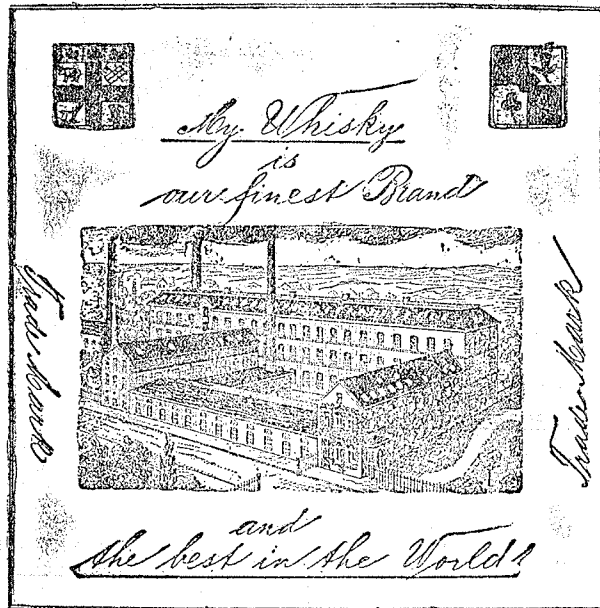 My Whisky
is
our finest Brand
Trade Mark
Trade Mark
and
the best in the World!